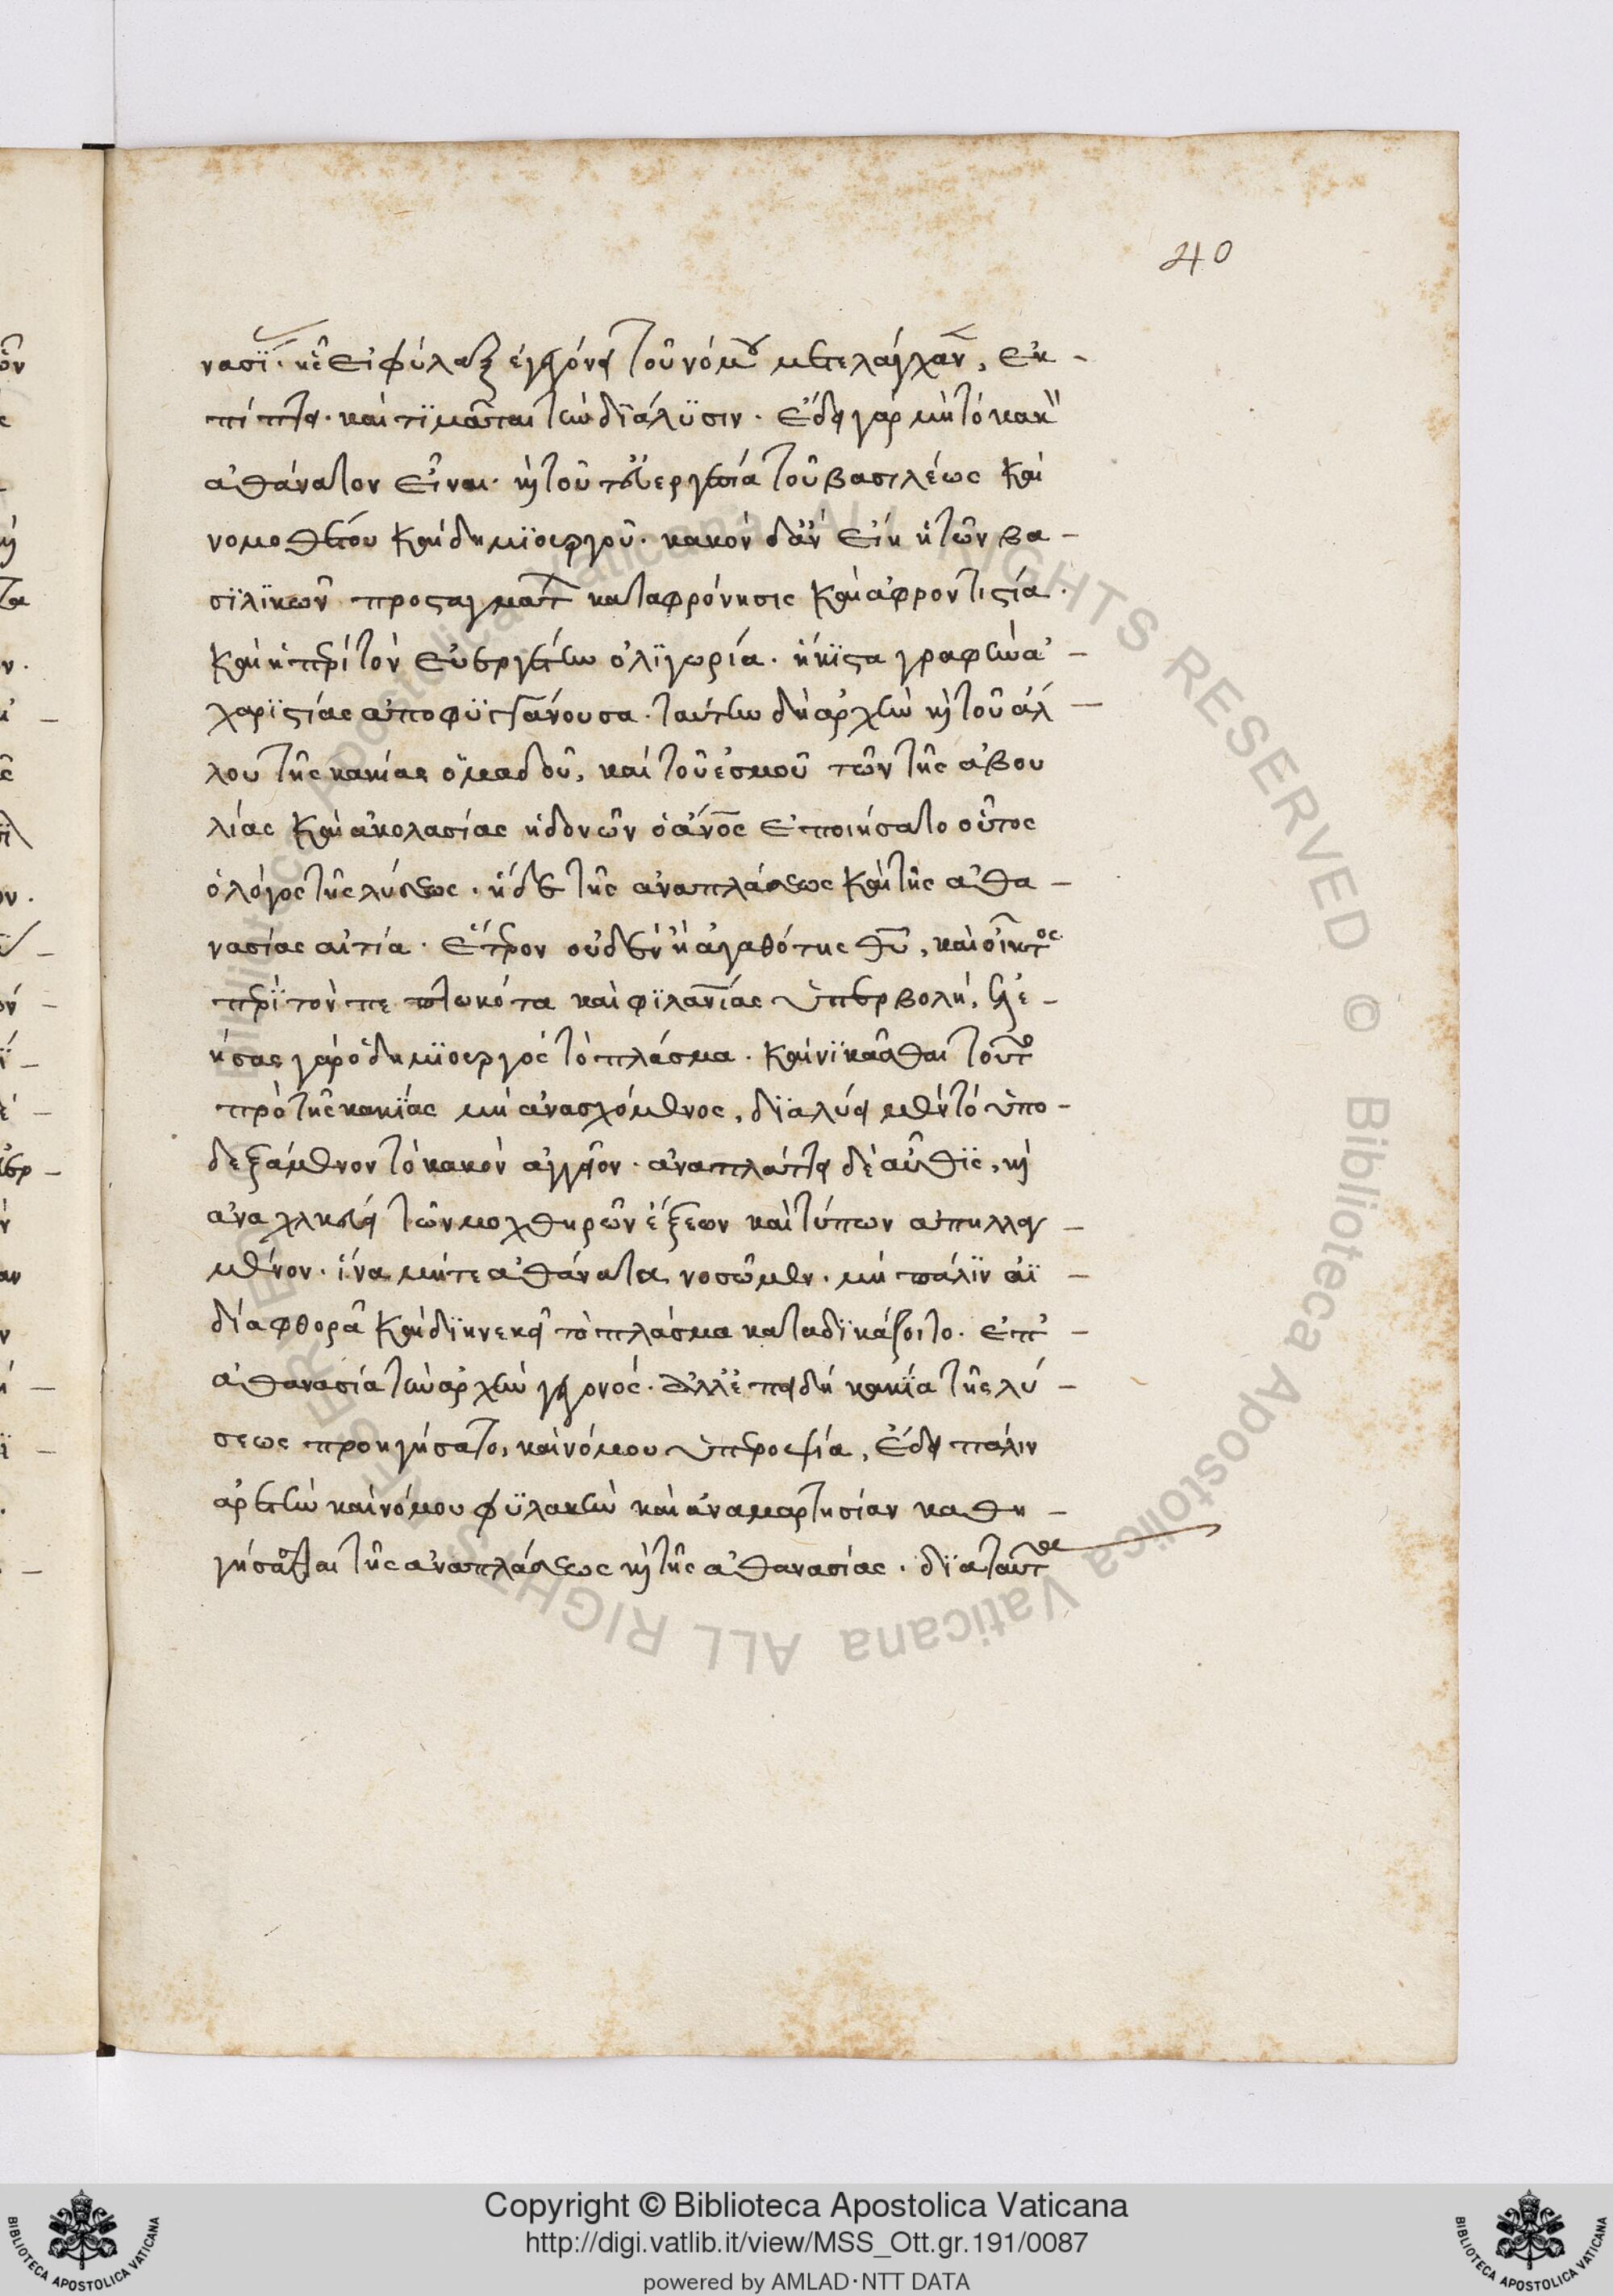 40
νασΐ. κ̓ εἰ φύλαξ ἐγεγόνει τοῦ νόμου μετελάγχαν, ἐκ -
πίπτει. καὶ τιμᾶται τὴν διάλυσιν. ἔδει γὰρ μὴ τὸ κακὸν
ἀθάνατον εἶναι. καὶ τοῦ βασιλέως καὶ
νομοθέτου καὶ δημϊουργοῦ. κακὸν δ' ἂν εἴη ἡ τῶν βα -
σϊλϊκῶν προσταγμάτων καταφρόνησις καὶ ἀφροντιστία.
καὶ ἡ περὶ τὸν εὐεργέτην ὀλϊγωρία. ἥκϊστα γραφὴν ἀ -
χαρϊστίας ἀποφϋγγάνουσα. ταύτην δὴ ἀρχὴν καὶ τοῦ ἄλ -
λου τῆς κακίας ὁμαδοῦ, καὶ τοῦ ἑσμοῦ τῶν τῆς ἀβου
λίας καὶ ἀκολασίας ἡδονῶν ὁ ἄνος ἐποιήσατο οὗτος
ὁ λόγος τῆς λύσεως. ἡ δὲ τῆς ἀναπλάσεως καὶ τῆς ἀθα -
νασίας αἰτία. ἕτερον οὐδὲν ἢ ἀγαθότης θῦ, καὶ οἶκτος
περὶ τὸν πεπτωκότα καὶ φϊλανίας ὑπερβολή, ἐλε -
ήσας γὰρ ὁ δημϊουργὸς τὸ πλάσμα. καὶ νϊκᾶσθαι τοῦτο
πρὸ τῆς κακΐας μὴ ἀνασχόμενος, δϊαλύει μὲν τὸ ὑπο -
δεξάμενον τὸ κακὸν ἀγγεῖον. ἀναπλάττει δὲ αὖθϊς, καὶ
ἀναχαλκεύει τῶν μοχθηρῶν ἕξεων καὶ τύπων ἀπηλλαγ -
μένον. ἵνα μήτε ἀθάνατα νοσῶμεν. μὴ πάλϊν ἀϊ -
δία φθορᾷ καὶ δϊηνεκεῖ τὸ πλάσμα καταδϊκάζοιτο. ἐπ' -
ἀθανασίᾳ τὴν ἀρχὴν γεγονός. ἀλλ' ἐπειδὴ κακΐα τῆς λύ -
σεως προηγήσατο, καὶ νόμου ὑπεροψία, ἔδει πάλιν
ἀρετὴν καὶ νόμου φϋλακὴν καὶ ἀναμαρτησίαν καθη -
γήσασθαι τῆς ἀναπλάσεως καὶ τῆς ἀθανασίας. δϊὰ ταῦτα
Copyright © Biblioteca Apostolica Vaticana
http://digi.vatlib.it/view/MSS_Ott.gr.191/0087
powered by AMLAD·NTT DATA